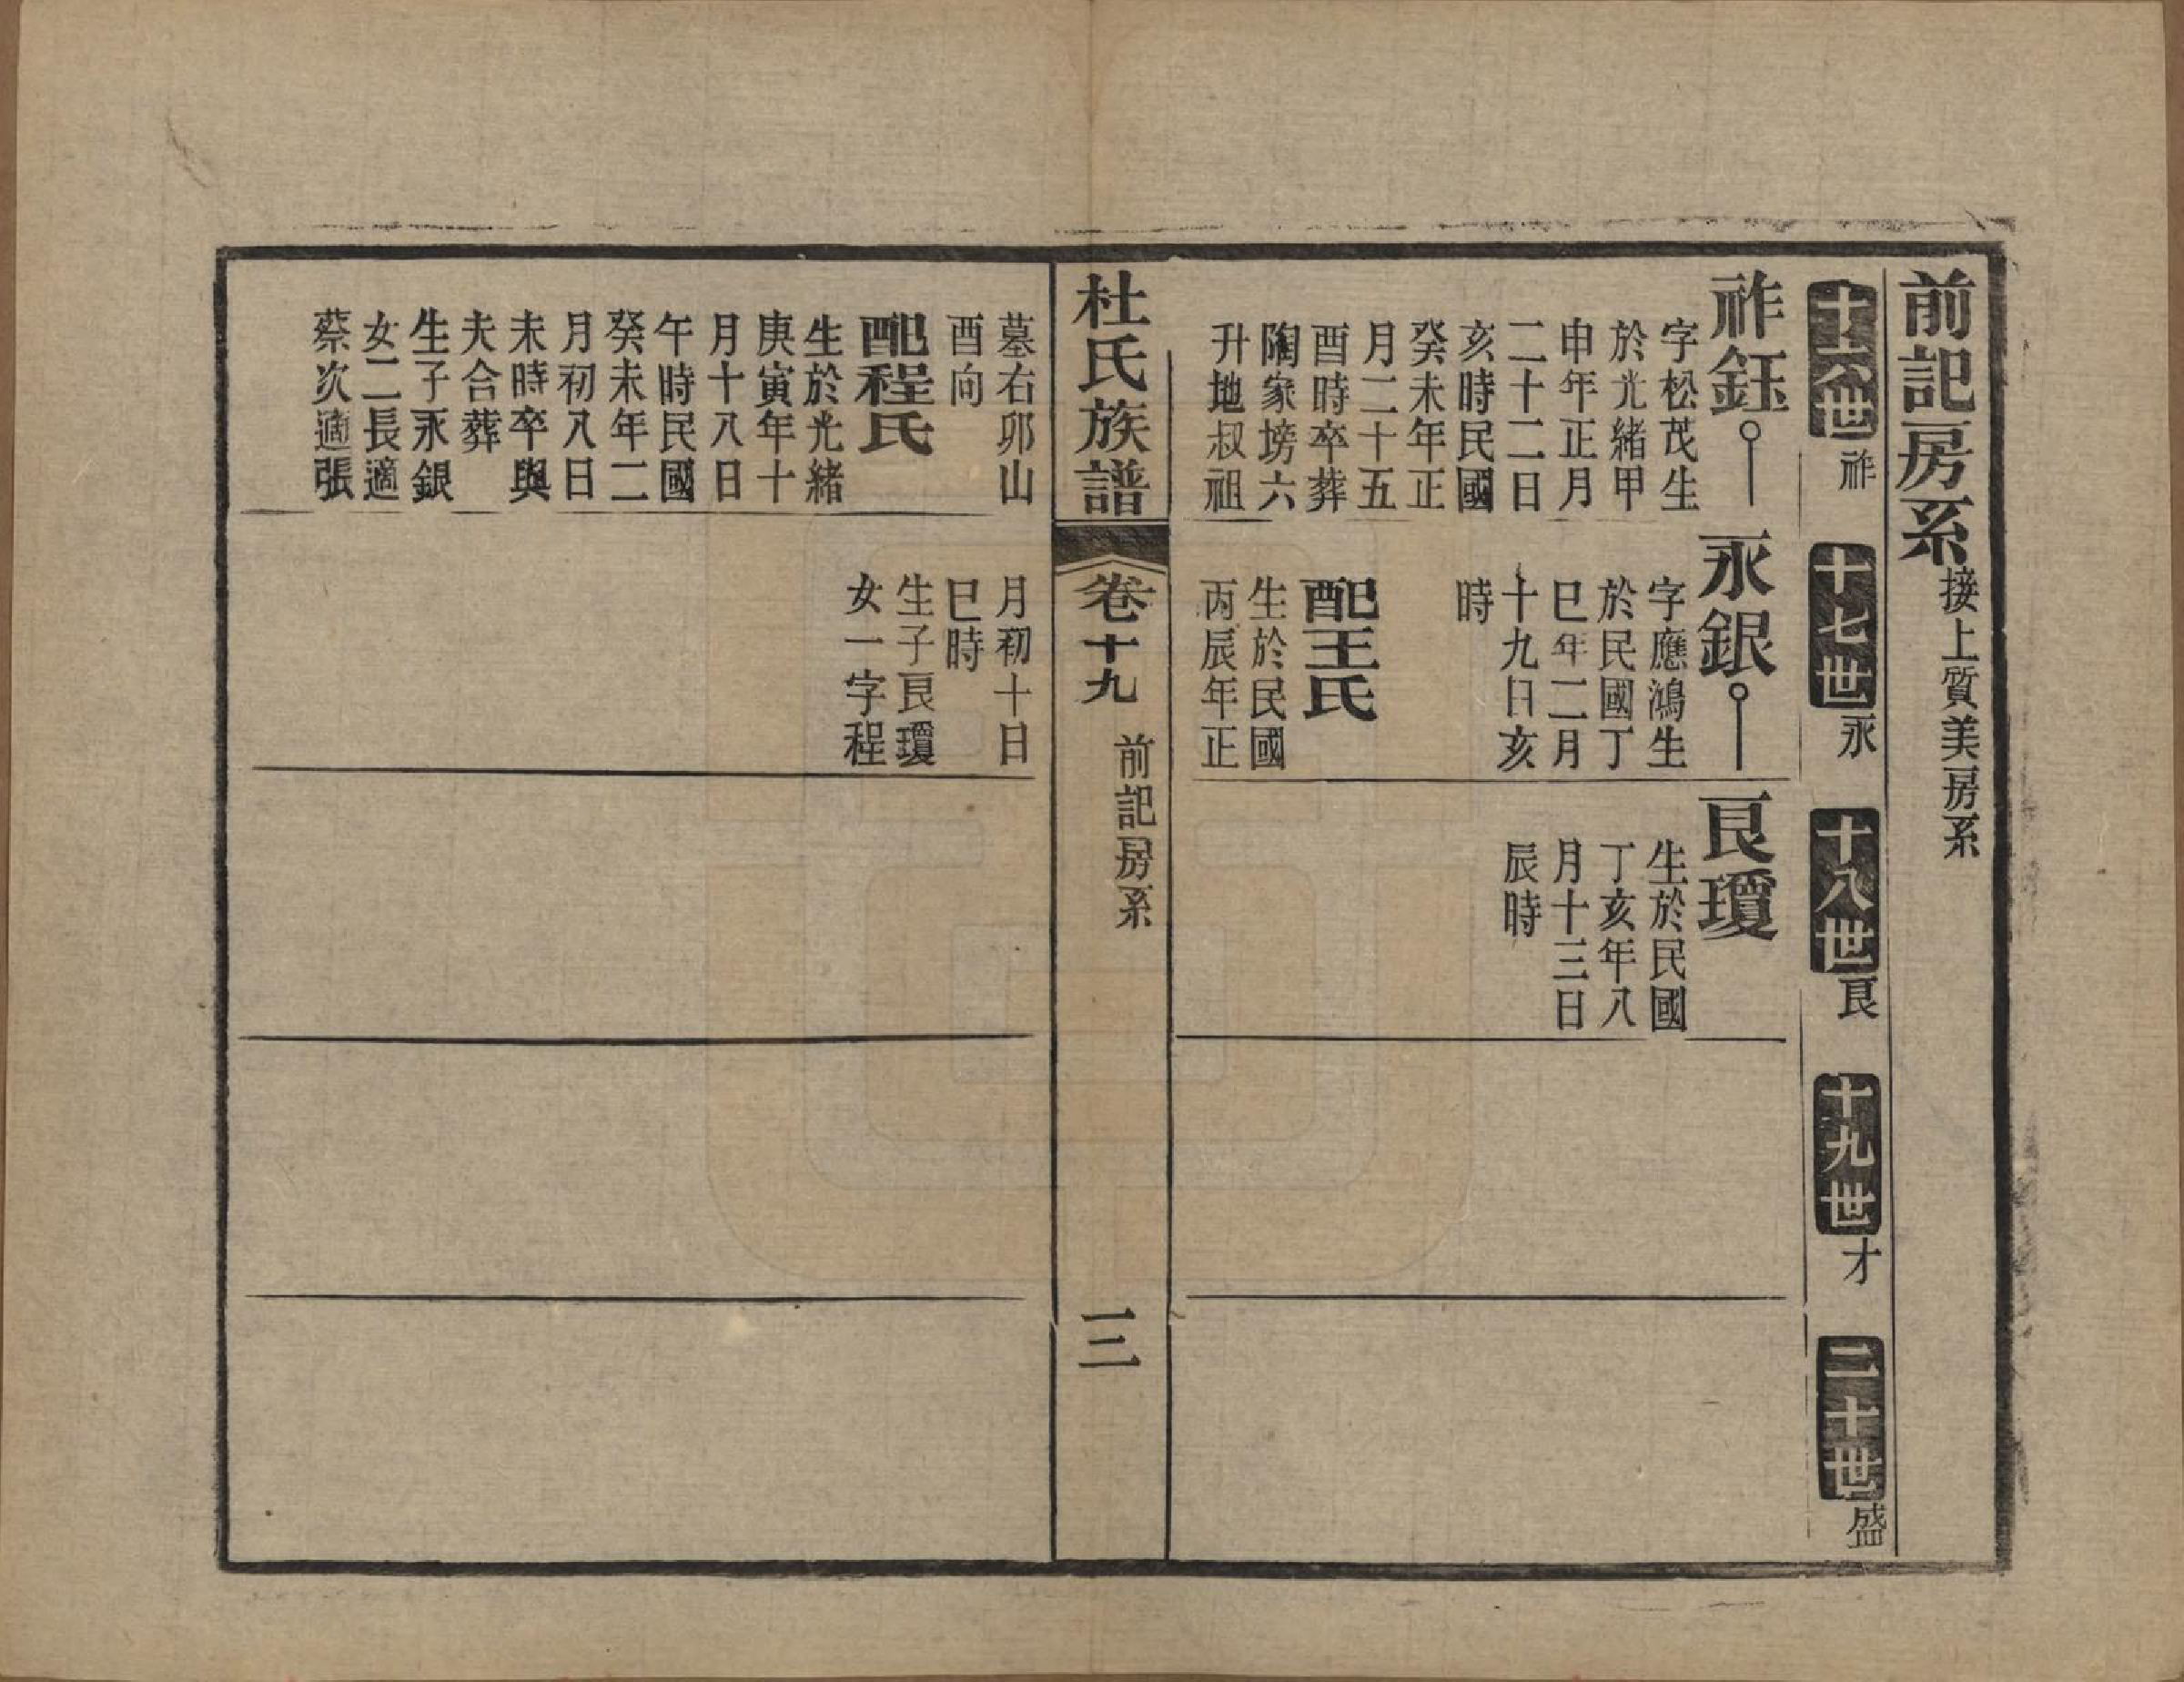 前記房系接上質美房系
十六世祚
十七世永
十八世良
十九世才
二十世盛
祚鈺
字松茂生
於光緒甲
申年正月
二十二日
亥時民國
癸未年正
月二十五
酉時卒葬
陶家塝六
升地叔祖
墓右卯山
酉向
配程氏
生於光緒
庚寅年十
月十八日
午時民國
癸未年二
月初八日
未時卒與
夫合葬
生子永銀
女二長適
蔡次適張
永銀
字應鴻生
於民國丁
巳年二月
十九日亥
時
配王氏
生於民國
丙辰年正
月初十日
巳時
生子良瓊
女一字程
良瓊
生於民國
丁亥年八
月十三日
辰時
杜氏族譜
卷十九
前記房系
三